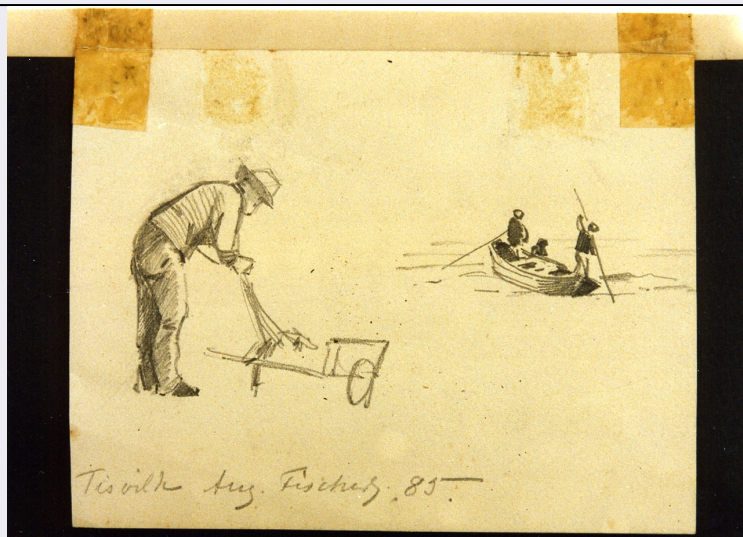 Tisvilk Aug. Fischer. 85